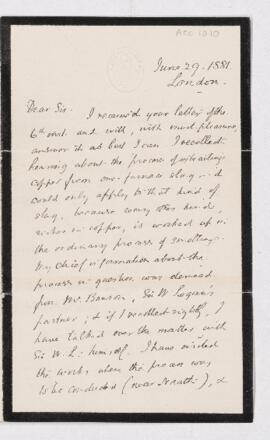 Acc 1010
June 29. 1881.
London.
Dear Sir. I received your letter of the
6th inst. and will, with much pleasure,
answer it as best I can. I recollect
hearing about the process of extracting
copper from ore-furnace slag - it
could only apply to that kind of
slag, because every other kind,
richer in copper, is worked up in
the ordinary process of smelting.
My chief information about the
process in question was derived
from Mr. Benson, Sir W. Logan's
partner; & if I recollect rightly, I
have talked over the matter with
Sir W. L. himself. I have visited
the works where the process was
to be conducted (near Neath), &